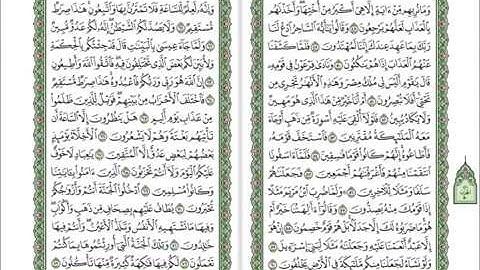 وَمَا نُرِيهِم مِّنْ ءَايَةٍ إِلَّا هِىَ أَكْبَرُ مِنْ أُخْتِهَا وَأَخَذْنَٰهُم
بِٱلْعَذَابِ لَعَلَّهُمْ يَرْجِعُونَ ٤٨ وَقَالُوا۟ يَٰٓأَيُّهَ ٱلسَّاحِرُ ٱدْعُ لَنَا
رَبَّكَ بِمَا عَهِدَ عِندَكَ إِنَّنَا لَمُهْتَدُونَ ٤٩ فَلَمَّا كَشَفْنَا
عَنْهُمُ ٱلْعَذَابَ إِذَا هُمْ يَنكُثُونَ ٥٠ وَنَادَىٰ فِرْعَوْنُ فِى قَوْمِهِۦ
قَالَ يَٰقَوْمِ أَلَيْسَ لِى مُلْكُ مِصْرَ وَهَٰذِهِ ٱلْأَنْهَٰرُ تَجْرِى مِن
تَحْتِىٓ أَفَلَا تُبْصِرُونَ ٥١ أَمْ أَنَا۠ خَيْرٌ مِّنْ هَٰذَا ٱلَّذِى هُوَ مَهِينٌ
وَلَا يَكَادُ يُبِينُ ٥٢ فَلَوْلَآ أُلْقِىَ عَلَيْهِ أَسْوِرَةٌ مِّن ذَهَبٍ أَوْ جَآءَ
مَعَهُ ٱلْمَلَٰٓئِكَةُ مُقْتَرِنِينَ ٥٣ فَٱسْتَخَفَّ قَوْمَهُۥ
فَأَطَاعُوهُ إِنَّهُمْ كَانُوا۟ قَوْمًا فَٰسِقِينَ ٥٤ فَلَمَّآ ءَاسَفُونَا
ٱنتَقَمْنَا مِنْهُمْ فَأَغْرَقْنَٰهُمْ أَجْمَعِينَ ٥٥ فَجَعَلْنَٰهُمْ
سَلَفًا وَمَثَلًا لِّلْءَاخِرِينَ ٥٦ وَلَمَّا ضُرِبَ ٱبْنُ مَرْيَمَ مَثَلًا
إِذَا قَوْمُكَ مِنْهُ يَصِدُّونَ ٥٧ وَقَالُوٓا۟ ءَأَٰلِهَتُنَا خَيْرٌ أَمْ
هُوَ مَا ضَرَبُوهُ لَكَ إِلَّا جَدَلًۢا بَلْ هُمْ قَوْمٌ خَصِمُونَ ٥٨ إِنْ
هُوَ إِلَّا عَبْدٌ أَنْعَمْنَا عَلَيْهِ وَجَعَلْنَٰهُ مَثَلًا لِّبَنِىٓ إِسْرَٰٓءِيلَ
٥٩ وَلَوْ نَشَآءُ لَجَعَلْنَا مِنكُم مَّلَٰٓئِكَةً فِى ٱلْأَرْضِ يَخْلُفُونَ ٦٠
وَإِنَّهُۥ لَعِلْمٌ لِّلسَّاعَةِ فَلَا تَمْتَرُنَّ بِهَا وَٱتَّبِعُونِ هَٰذَا صِرَٰطٌ
مُّسْتَقِيمٌ ٦١ وَلَا يَصُدَّنَّكُمُ ٱلشَّيْطَٰنُ إِنَّهُۥ لَكُمْ عَدُوٌّ مُّبِينٌ
٦٢ وَلَمَّا جَآءَ عِيسَىٰ بِٱلْبَيِّنَٰتِ قَالَ قَدْ جِئْتُكُم بِٱلْحِكْمَةِ
وَلِأُبَيِّنَ لَكُم بَعْضَ ٱلَّذِى تَخْتَلِفُونَ فِيهِ فَٱتَّقُوا۟ ٱللَّهَ وَأَطِيعُونِ
٦٣ إِنَّ ٱللَّهَ هُوَ رَبِّى وَرَبُّكُمْ فَٱعْبُدُوهُ هَٰذَا صِرَٰطٌ مُّسْتَقِيمٌ
٦٤ فَٱخْتَلَفَ ٱلْأَحْزَابُ مِنۢ بَيْنِهِمْ فَوَيْلٌ لِّلَّذِينَ ظَلَمُوا۟
مِنْ عَذَابِ يَوْمٍ أَلِيمٍ ٦٥ هَلْ يَنظُرُونَ إِلَّا ٱلسَّاعَةَ أَن
تَأْتِيَهُم بَغْتَةً وَهُمْ لَا يَشْعُرُونَ ٦٦ ٱلْأَخِلَّآءُ يَوْمَئِذٍۭ
بَعْضُهُمْ لِبَعْضٍ عَدُوٌّ إِلَّا ٱلْمُتَّقِينَ ٦٧ يَٰعِبَادِ لَا خَوْفٌ
عَلَيْكُمُ ٱلْيَوْمَ وَلَآ أَنتُمْ تَحْزَنُونَ ٦٨ ٱلَّذِينَ ءَامَنُوا۟ بِـَٔايَٰتِنَا
وَكَانُوا۟ مُسْلِمِينَ ٦٩ ٱدْخُلُوا۟ ٱلْجَنَّةَ أَنتُمْ وَأَزْوَٰجُكُمْ
تُحْبَرُونَ ٧٠ يُطَافُ عَلَيْهِم بِصِحَافٍ مِّن ذَهَبٍ وَأَكْوَابٍ
وَفِيهَا مَا تَشْتَهِيهِ ٱلْأَنفُسُ وَتَلَذُّ ٱلْأَعْيُنُ وَأَنتُمْ فِيهَا
خَٰلِدُونَ ٧١ وَتِلْكَ ٱلْجَنَّةُ ٱلَّتِىٓ أُورِثْتُمُوهَا بِمَا كُنتُمْ
تَعْمَلُونَ ٧٢ لَكُمْ فِيهَا فَٰكِهَةٌ كَثِيرَةٌ مِّنْهَا تَأْكُلُونَ ٧٣